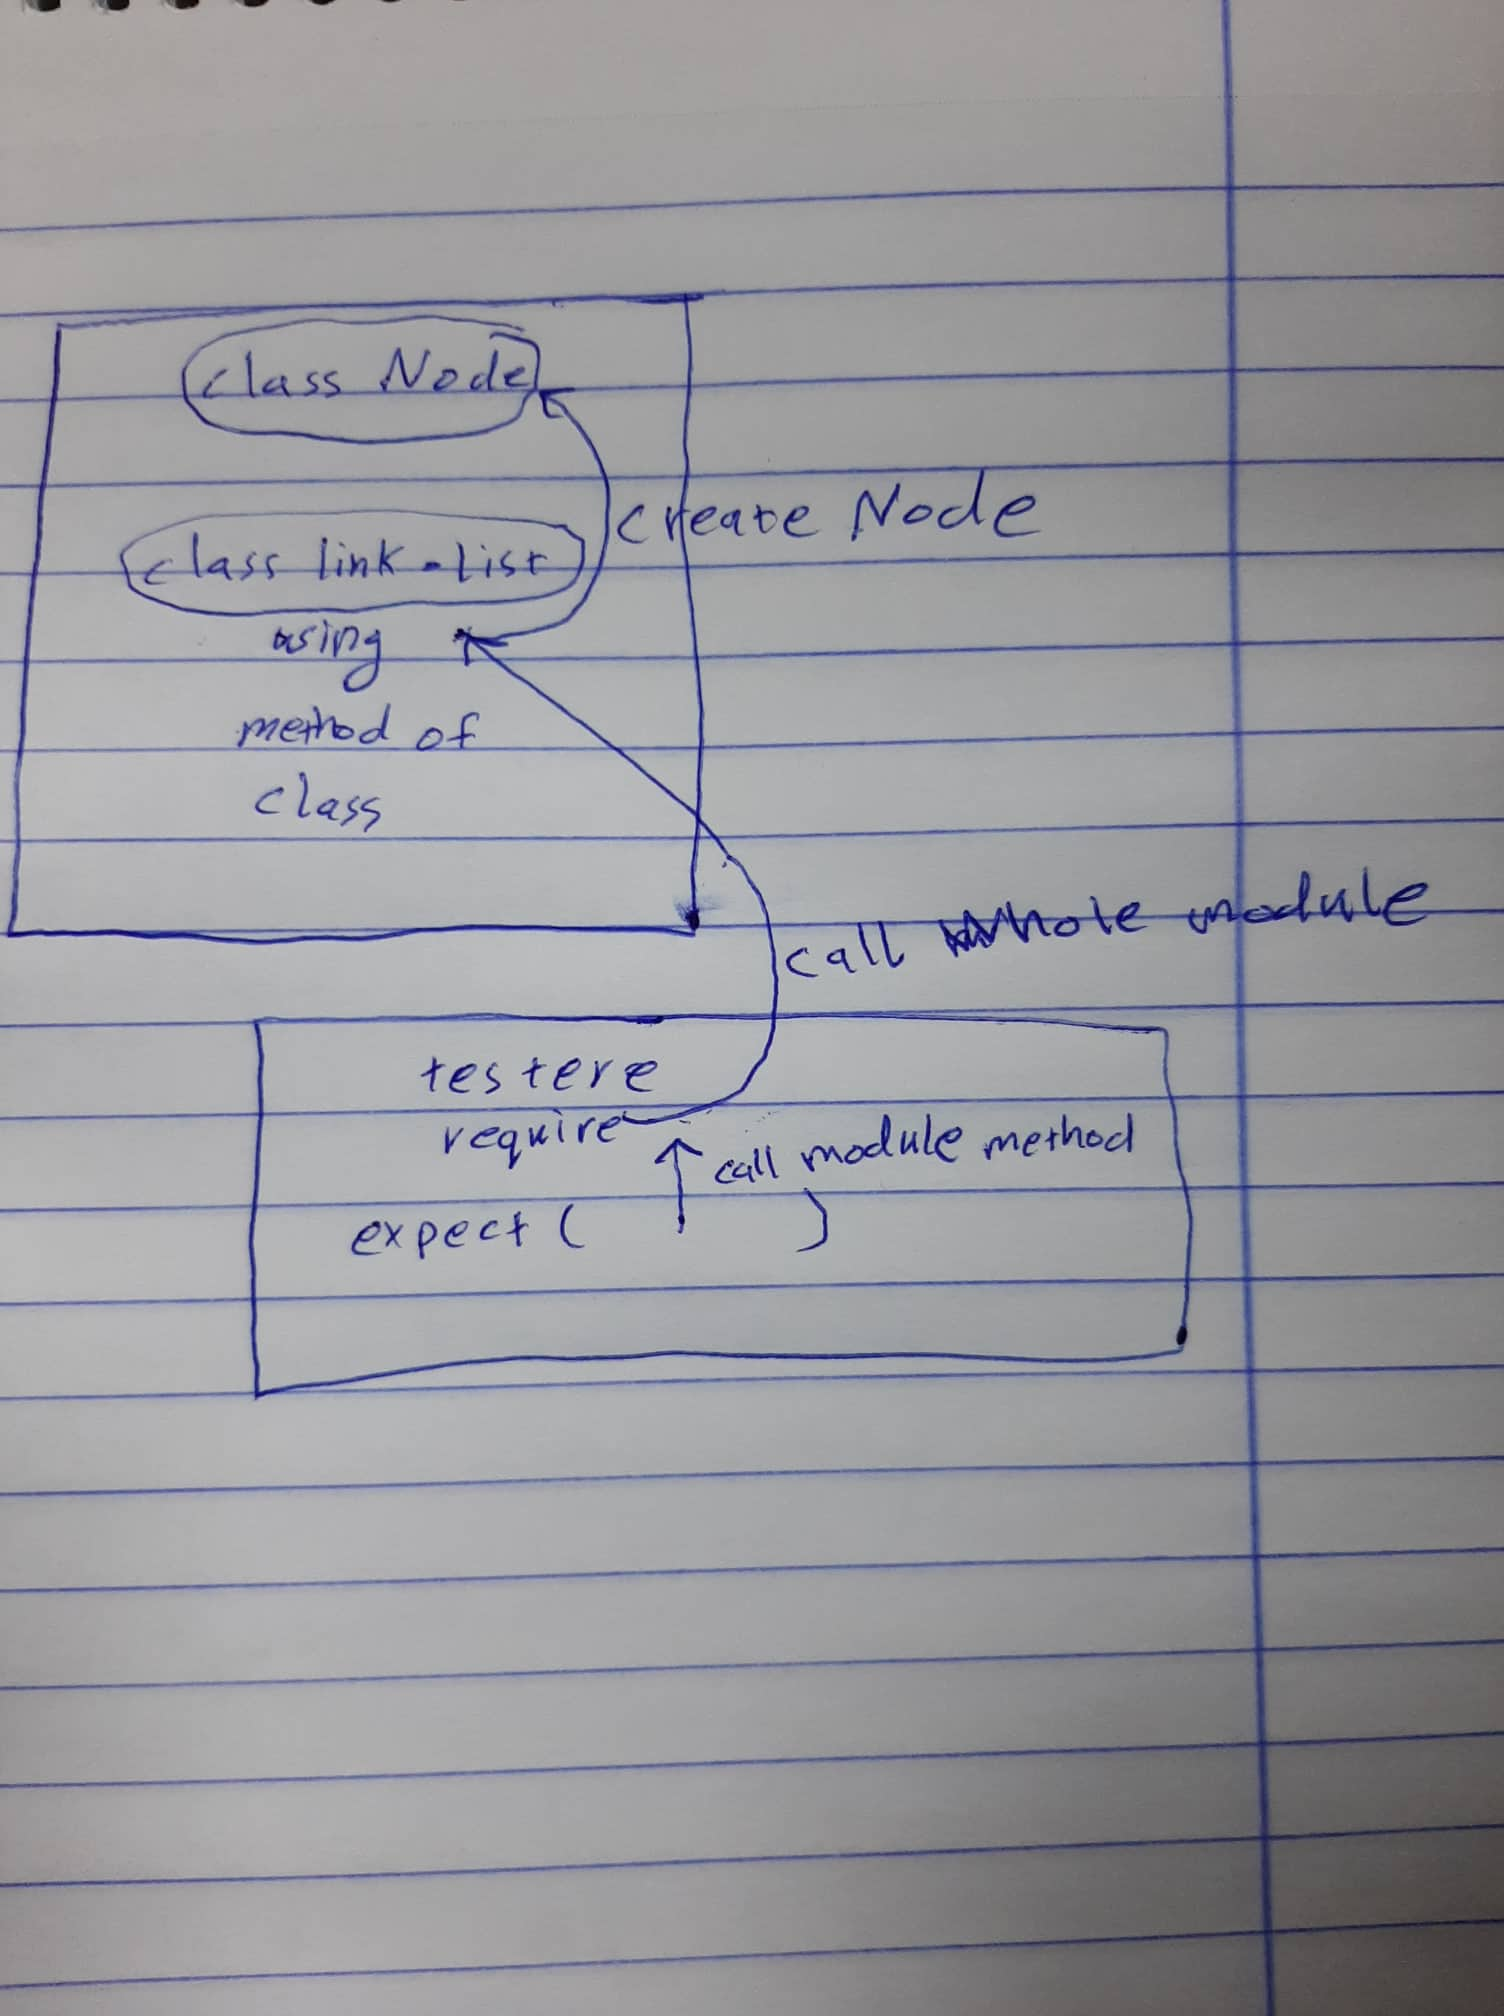 class Node
create Node
class link-list
using
method of
class
call Whole module
testere
require
call module method
expect (            )